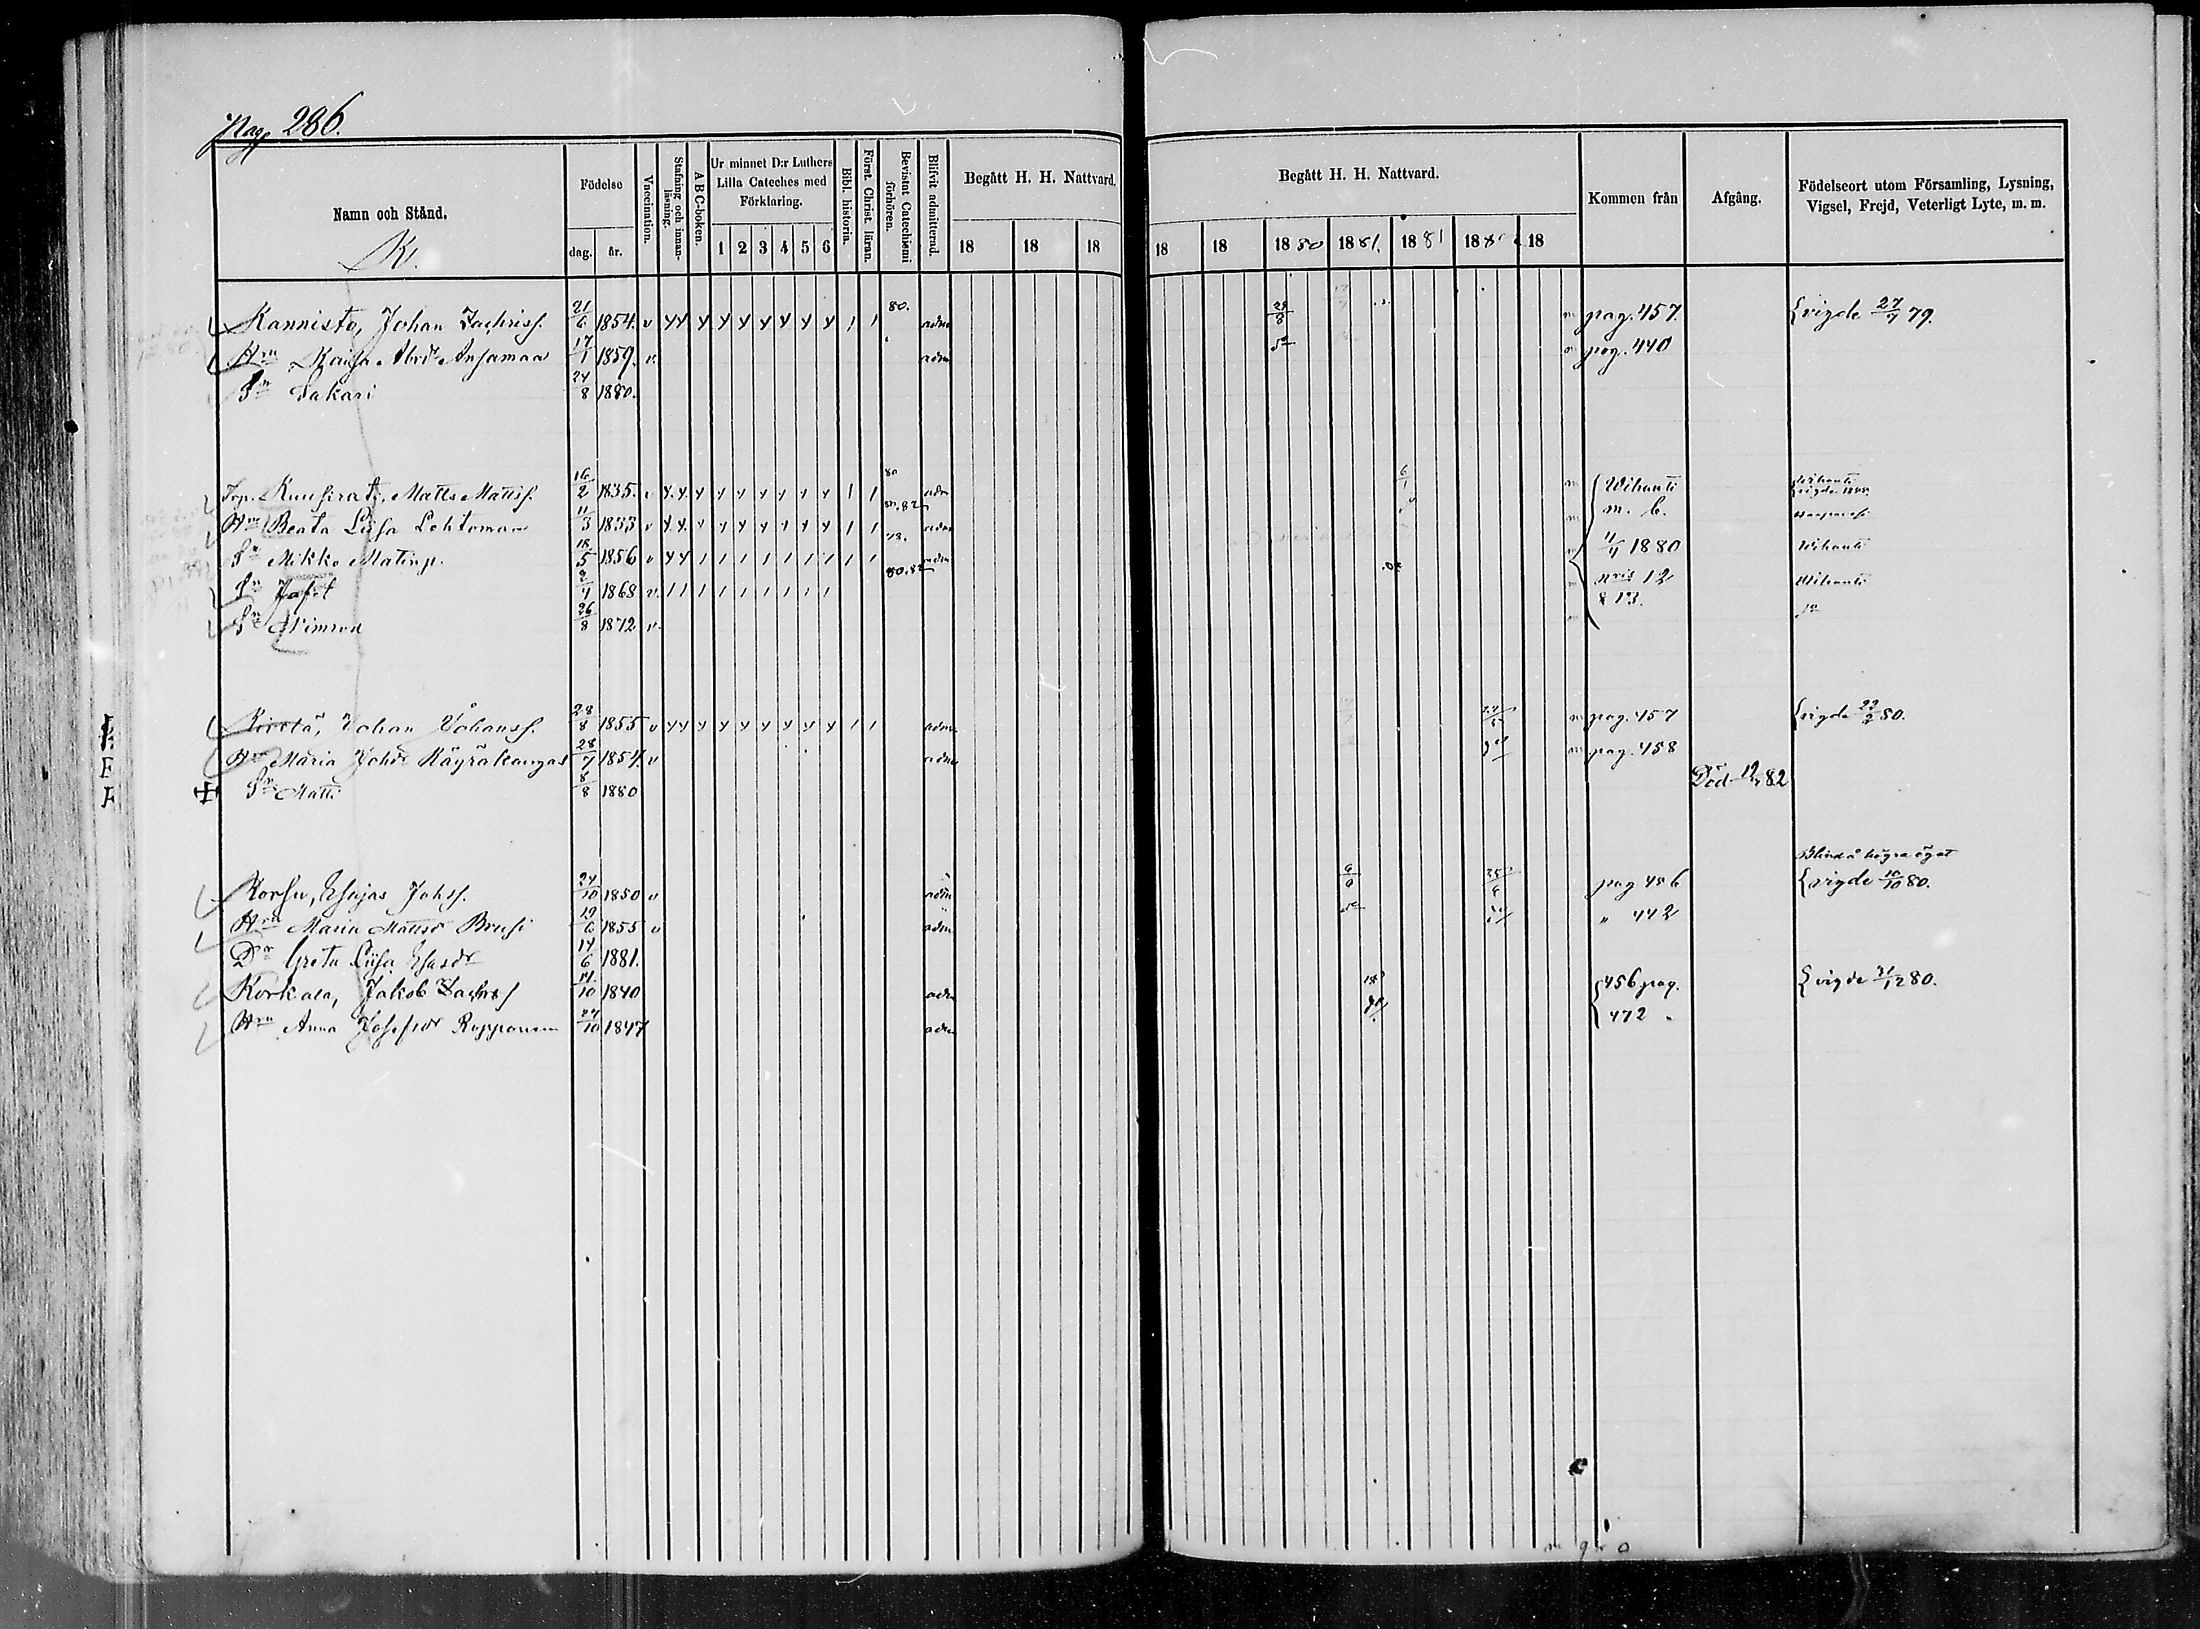 Pag. 286.
Namn och Stånd.
Födelse
dag. år.
Vaccination.
Stafning och innanläsning.
A B C-boken.
Ur minnet D:r Luthers Lilla Cateches med Förklaring.
1 2 3 4 5 6
Bibl. historia.
Först. Christ. läran.
Bevistat Catechismi förhören.
Blifvit admitterad.
Begått H. H. Nattvard.
18 18 18
Begått H. H. Nattvard.
18 18 1880 1881. 1881 188 18
Kommen från
Afgång.
Födelseort utom Församling, Lysning, Vigsel, Frejd, Veterligt Lyte, m. m.
K.
Kannisto, Johan Zachriss. 21/6 1854. v y y y y y y y y y 1 1 80. adm 29/8 pag. 457. vigde 27/7 79.
Hru Kaisa Abrdr Ansamaa 17/1 1859. v. adm do pag. 440
Sn Sakari 24/8 1880.
Matts Mattss. 16/2 1835. v y y y y y y y y y 1 1 80 adm 6/1 Wihanti
Hru Beata Liisa Lehtomaa 11/3 1833 v y y y y y y y y y 1 1 80.82 adm m. b.
Sn Mikko Matinp. 18/5 1856 v y y 1 1 1 1 1 1 1 1 1 78. adm 1880 Wihanti
Sn Jafet 1868 v. 1 1 1 1 1 1 1 1 1 80.82 nris 12 Wihanti
Sn Nimrod 26/8 1872 v. & 13. do
Johan Johanss. 28/8 1855 v y y y y y y y y y 1 1 adm pag. 457 vigde 22/2 80.
Hru Maria Johdr Käyräkangas 28/7 1854. v adm pag. 458
Sn Matti 8/8 1880 Död 82
Blind å högra ögat
Korsu, Esajas Johss. 24/10 1850 v adm 6/6 25/6 pag 456 vigde 10/10 80.
Hru Maria Mattsdr Brusi 19/6 1855 v adm do do " 442
Dr Greta Liisa Esasdr 14/6 1881.
Korkala, Jakob Zachrs 11/10 1840 adm 456 pag. vigde 31/12 80.
Hru Anna Josefsdr Ropponen 27/10 1847 adm 472 "